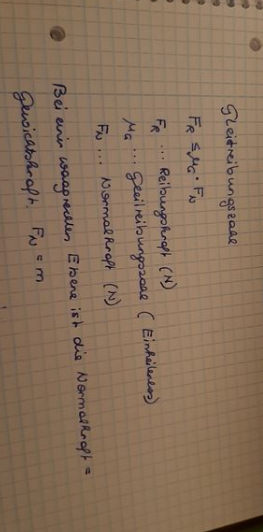 Gleitreibungszahl
FR ≤ μG · FN
FR ... Reibungskraft (N)
μG ... Gleitreibungszahl (Einheitenlos)
FN ... Normalkraft (N)
Bei einer waagrechten Ebene ist die Normalkraft =
Gewichtskraft. FN = m